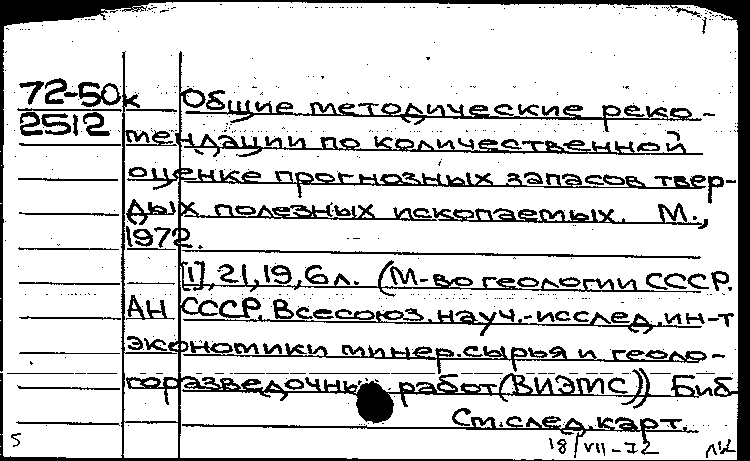 72-50к Общие методические реко-
2512 мендации по количественной
оценке прогнозных запасов твер-
дых полезных ископаемых. М.,
1972.
[1], 21, 19, 6 л. (М-во геологии СССР.
АН СССР. Всесоюз. науч.-исслед. ин-т
экономики минер. сырья и геоло-
горазведочных работ (ВИЭМС)) Биб
См. след. карт.
5 18/VII-72